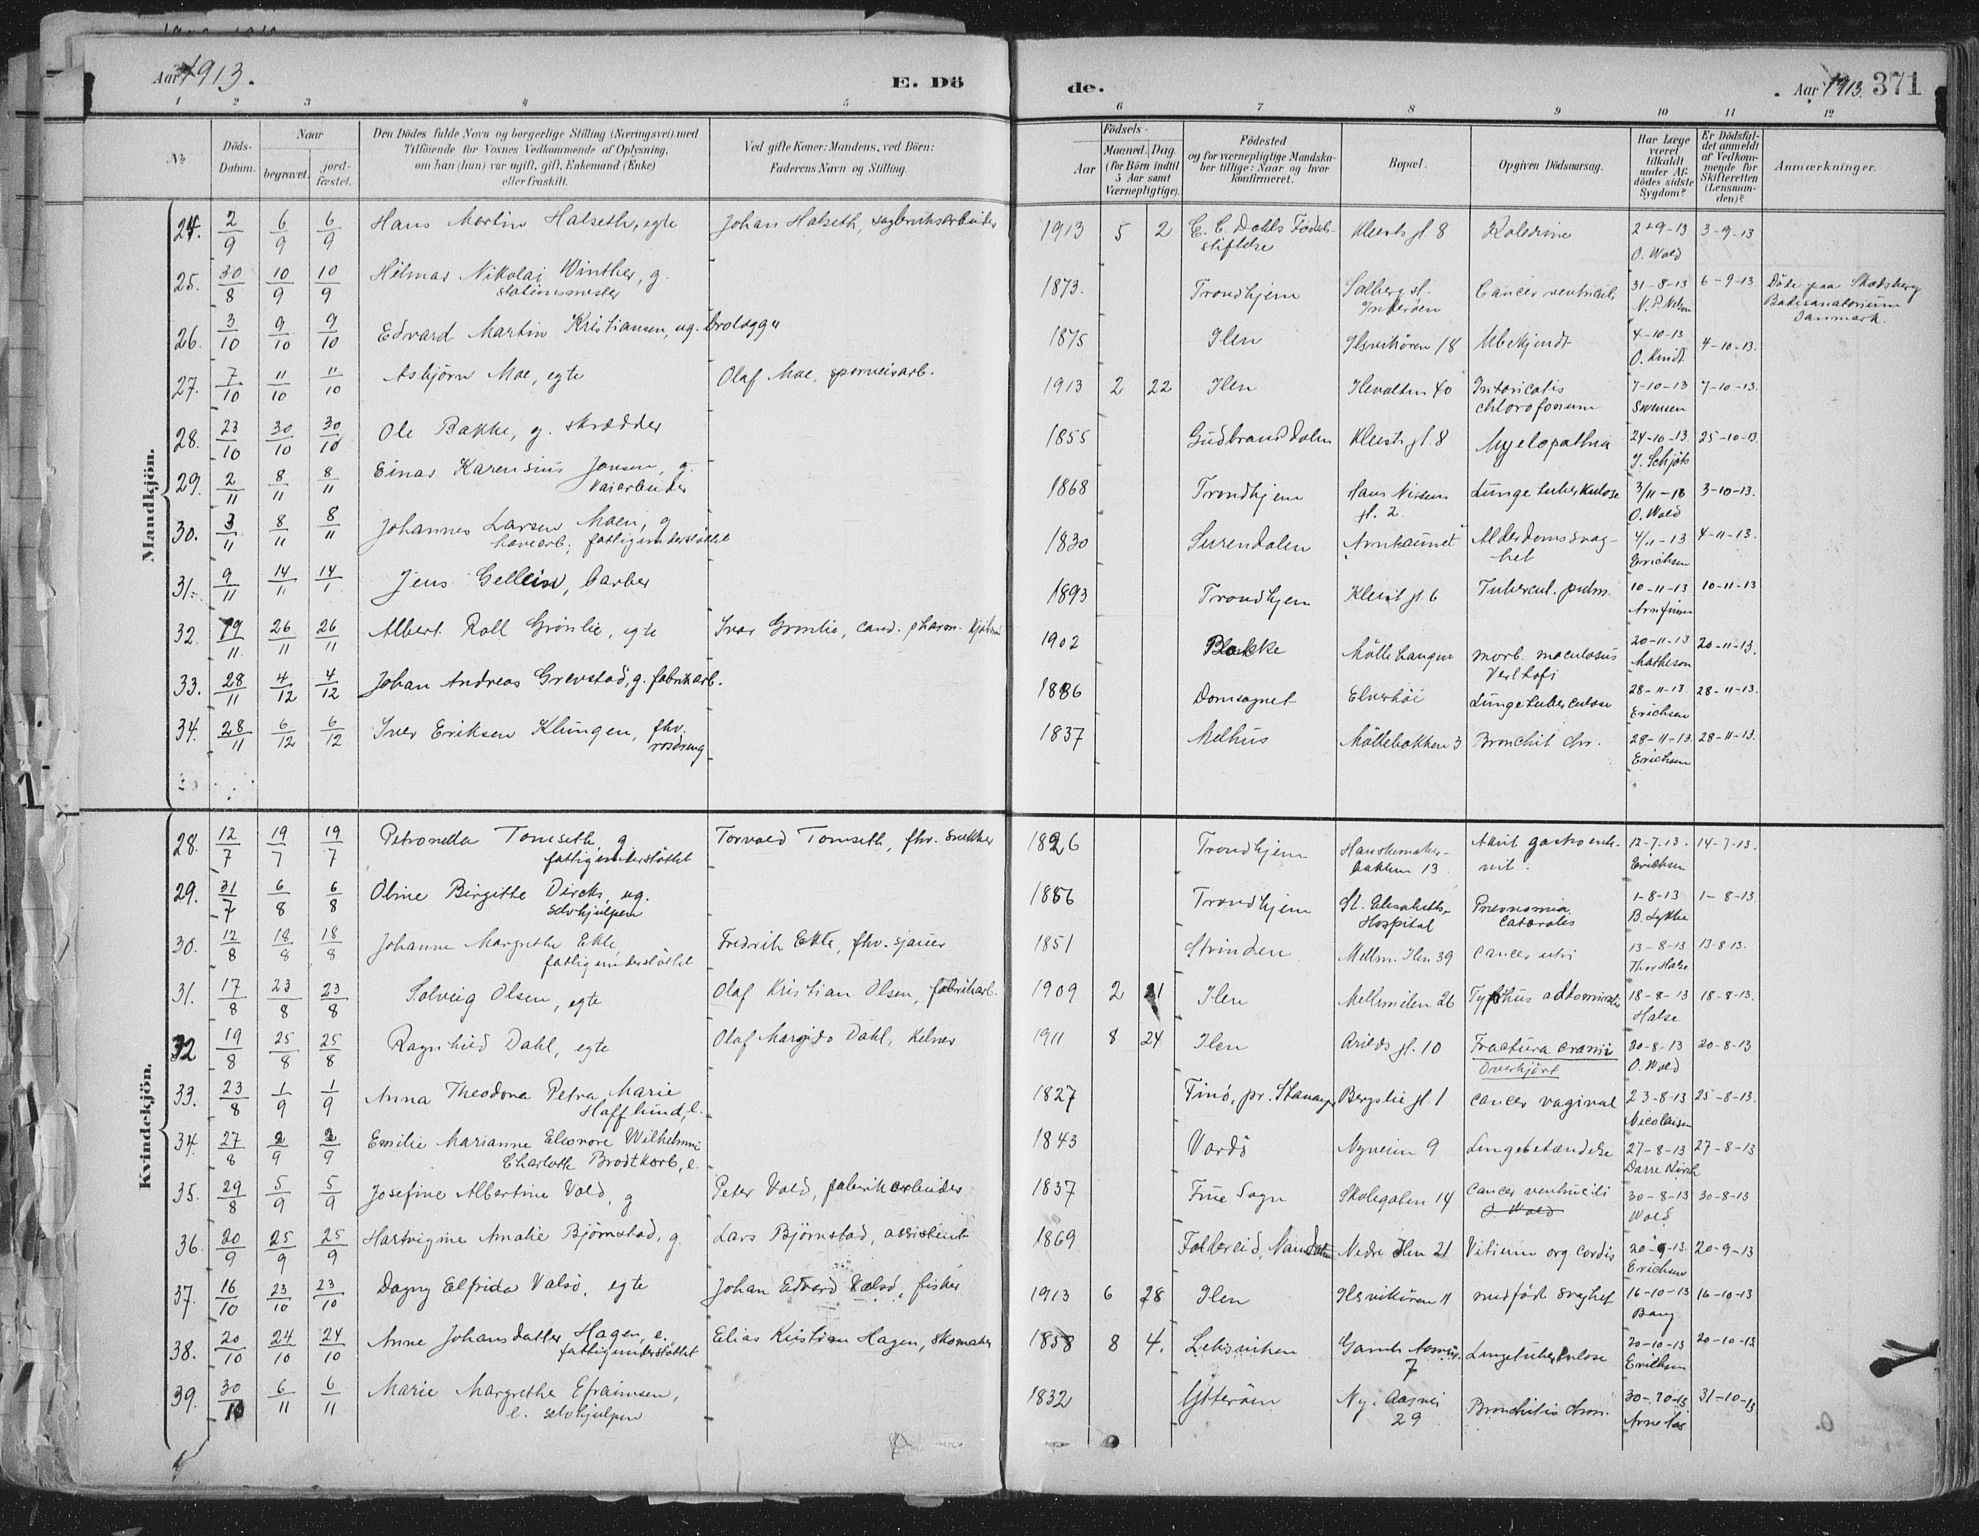 Aar 1913.
E. Döde.
Aar 1913. 371
1 2 3 4 5 6 7 8 9 10 11 12
No
Döds-Datum.
Naar
begravet.
jordfæstet.
Den Dödes fulde Navn og borgerlige Stilling (Næringsvei) med
Tilföiende for Voxnes Vedkommende af Oplysning,
om han (hun) var ugift, gift, Enkemand (Enke)
eller fraskilt.
Ved gifte Koner: Mandens, ved Börn:
Faderens Navn og Stilling.
Födsels-
Aar
Maaned. Dag.
(for Börn indtil
5 Aar samt
Værnepligtige).
Födested
og for værnepligtige Mandskaber tillige: Naar og hvor
konfirmeret.
Bopæl.
Opgiven Dödsaarsag.
Har Læge
været
tilkaldt
under Afdödes sidste
Sygdom?
Er Dödsfaldet anmeldt
af Vedkommende for
Skifteretten
(Lensmanden)?
Anmærkninger.
Mandkjön.
24. 2/9 6/9 6/9 Hans Martin Halseth, egte Johan Halseth, sagbruksarbeider 1913 5 2 E. C. Dahls Fødselsstiftelse Kleists gt. 8 Kolerine 2-9-13 O. Wold 3-9-13
25. 30/8 10/9 10/9 Hilmar Nikolai Winther, g. stationsmester 1873. Trondhjem Solberg st. Inderøen Cancer ventriculi 31-8-13 6-9-13 Døde paa Skodsborg Badesanatorium Danmark.
26. 3/10 9/10 9/10 Edvard Martin Kristiansen, ug. brolægger 1875 Ilen Ilsvikøren 18 Ubekjendt 4-10-13 O. Kindt 4-10-13.
27. 7/10 11/10 11/10 Asbjørn Moe, egte Olaf Moe, sporveisarb. 1913 2 22 Ilen Ilevolden 40 Intoxicatio chloroformum 7-10-13 Swensen 7-10-13.
28. 23/10 30/10 30/10 Ole Bakke, g. skrædder 1855 Gudbrandsdalen Kleists gt. 8 Myelopathia 24-10-13. J. Schjøt 25-10-13.
29. 2/11 8/11 8/11 Einar Karensius Jonsen, g. kaiarbeider 1868 Trondhjem Hans Nissens gt. 2 Lungetuberkulose 3/11-13 O. Wold 3-10-13.
30. 3/11 8/11 8/11 Johannes Larsen Moen, g havearb; fattigunderstøttet 1830 Surendalen Arnkaunet Alderdomssvaghet 4/11-13 Erichsen 4-11-13.
31. 9/11 14/11 14/1 Jens Gellein, barber 1893 Trondhjem Kleist gt. 6 Tubercul. pulm. 10-11-13 Arnfinsen 10-11-13
32. 19/11 26/11 26/11 Albert Roll Grønlie, egte Ivar Grønlie, cand. pharm. 1902 Bakke Møllebangen morb. maculosus Verlhofi 20-11-13 Matheson 20-11-13.
33. 28/11 4/12 4/12 Johan Andreas Grevstad, g. fabrikarb. 1886 Domsognet Elverhøi Lungetuberculose 28-11-13 Erichsen 28-11-13.
34. 28/11 6/12 6/12 Iver Eriksen Klungen, fhv. 1837 Melhus Møllebakken 3 Bronchit chr. 28-11-13. Erichsen 28-11-13.
Kvindekjön.
28. 12/7 19/7 19/7 Petronella Tomseth, g fattigunderstøttet Torvald Tomseth, fhv. snekker 1826 Trondhjem Hanskemakerbakken 13 Akut gastroenterit. 12-7-13. Erichsen 14-7-13.
29. 31/7 6/8 6/8 Oline Birgitte Dircks, ug. selvhjulpen 1856 Trondhjem St. Elisabeths Hospital Pneunomia Cataralis 1-8-13 B. Lykke 1-8-13
30. 12/8 18/8 18/8 Johanne Margrethe Ekle, fattigunderstøttet Fredrik Ekle, fhv. sjauer 1851 Strinden Mellm. Ilen 39 Cancer uteri 13-8-13 Thor Halse 13-8-13.
31. 17/8 23/8 23/8 Solveig Olsen, egte Olaf Kristian Olsen, fabrikarb. 1909 2 21 Ilen Mellemilen 26 Tyfhus abdominalis 18-8-13 Halse 18-8-13.
32 19/8 25/8 25/8 Ragnhild Dahl, egte Olaf Margido Dahl, kelner 1911 8 24 Ilen Arilds gt. 10 Fractura cranii Overkjørt 20-8-13 O. Wold 20-8-13
33. 23/8 1/9 1/9 Anna Theodora Petra Marie Hafflund, e. 1827 Finø, pr. Stavanger Bergslie gt. 1 cancer vaginal 23-8-13 Nicolaisen 25-8-13.
34. 27/8 2/9 2/9 Emilie Marianne Eleonore Wilhelmine Charlotte Brodtkorb, e. 1843 Vardø Nyveien 9 Lungebetændelse 27-8-13 27-8-13
35. 29/8 5/9 5/9 Josefine Albertine Vold, g Peter Vold, fabrikarbeider 1837 Frue Sogn Skolegaten 14 Cancer ventriculi O. Wold 30-8-13 Wold 30-8-13
36. 20/9 25/9 25/9 Hartvigine Amalie Bjørnstad, g. Lars Bjørnstad, assistent 1869 Foldereid, Namdalen Nedre Ilen 21 Vitium org. cordis 20-9-13. Erichsen 20-9-13
37. 16/10 23/10 23/10 Dagny Elfrida Valsø, egte Johan Edvard Valsø, fisker 1913 6 28 Ilen Ilsvikøren 11 medfødt svaghet 16-10-13 Bang 16-10-13
38. 20/10 24/10 24/10 Anne Johansdatter Hagen, e. fattigunderstøttet Elias Kristian Hagen, skomaker 1858 8 4. Leksviken Gamle Aasvei 7 Lungetuberkulose 20-10-13 Erichsen 20-10-13
39. 30/10 6/11 6/11 Marie Margrethe Efraimsen, e. selvhjulpen 1832 Ytterøen Ny. Aasvei 29 Bronchitis chron. 30-10-13 31-10-13